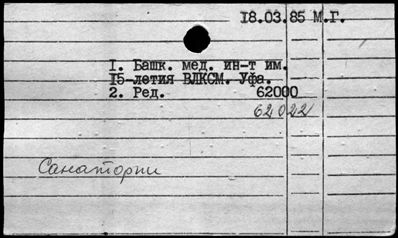 18.03.85 М.Г.
1. Башк. мед. ин-т им.
15-летия ВЛКСМ. Уфа.
2. Ред. 62000
62022
Санатории